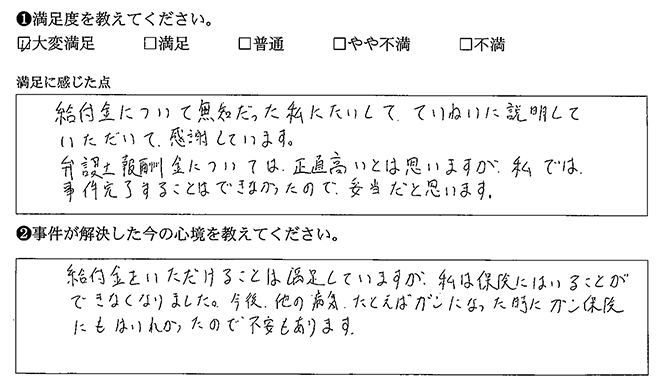 ❶満足度を教えてください。
☑大変満足 □満足 □普通 □やや不満 □不満
満足に感じた点
給付金について無知だった私にたいして、ていねいに説明して
いただいて、感謝しています。
弁護士報酬金については、正直高いとは思いますが、私では、
事件完了することはできなかったので、妥当だと思います。
❷事件が解決した今の心境を教えてください。
給付金をいただけることは満足していますが、私は保険にはいることが
できなくなりました。今後、他の病気、たとえばガンになった時にガン保険
にもはいれなかったので不安もあります。